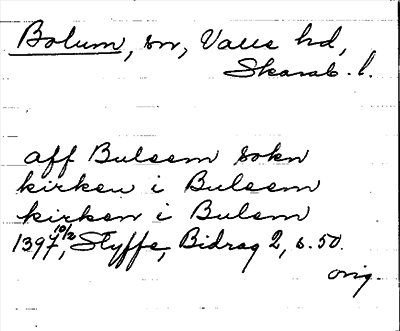 Bolum, sn, Valle hd,
Skarab. l.
aff Buleem sokn
kirken i Buleem
kirken i Bulem
1397 10/2, Styffe, Bidrag 2, s. 50.
orig.